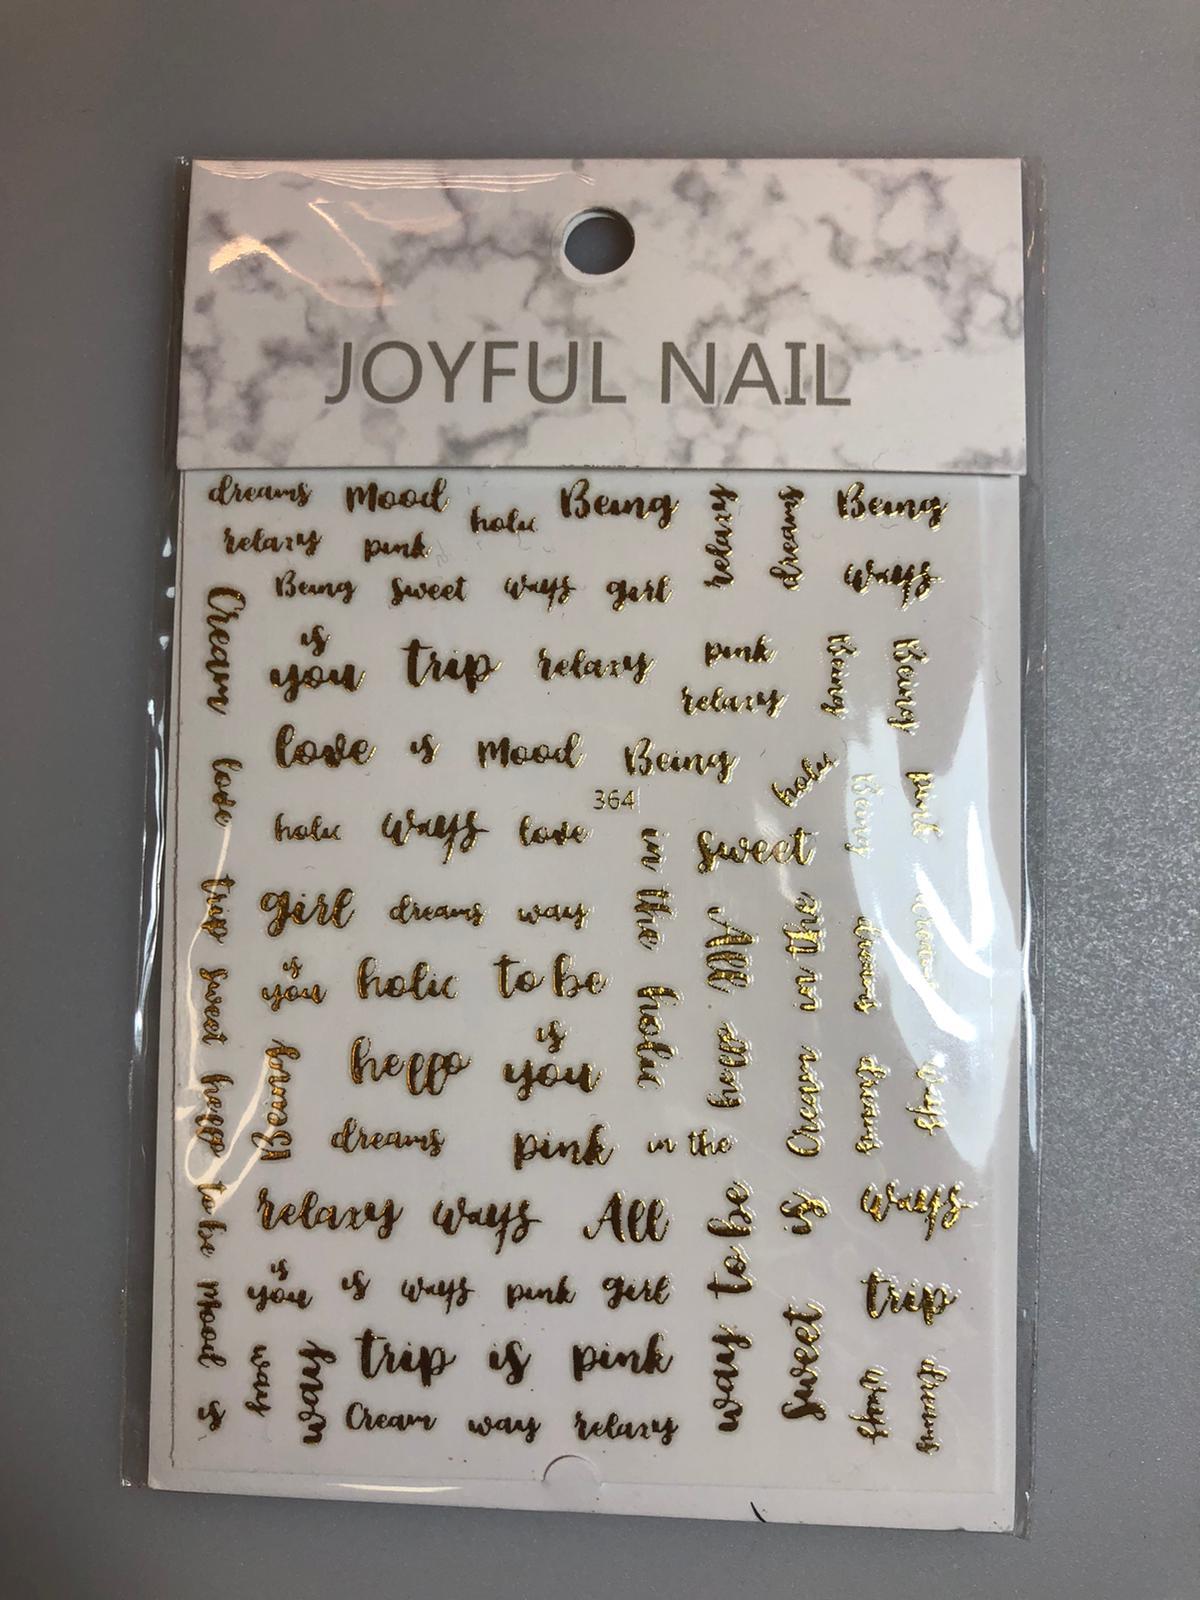 JOYFUL NAIL
dreams Mood holic Being relaxy dreams Being
relaxy pink
Being sweet ways girl ways
Cream
is
you trip relaxy pink Being Being
relaxy
love is Mood Being holic Being pink
364
love
holic ways love in the sweet
trip girl dreams way All in the dreams
is
you holic to be holic
sweet
is
hello you hello Cream dreams ways
hello Being
dreams pink in the
to be
relaxy ways All to be is ways
is
you is ways pink girl trip
Mood
way way trip is pink way sweet ways dreams
is Cream way relaxy